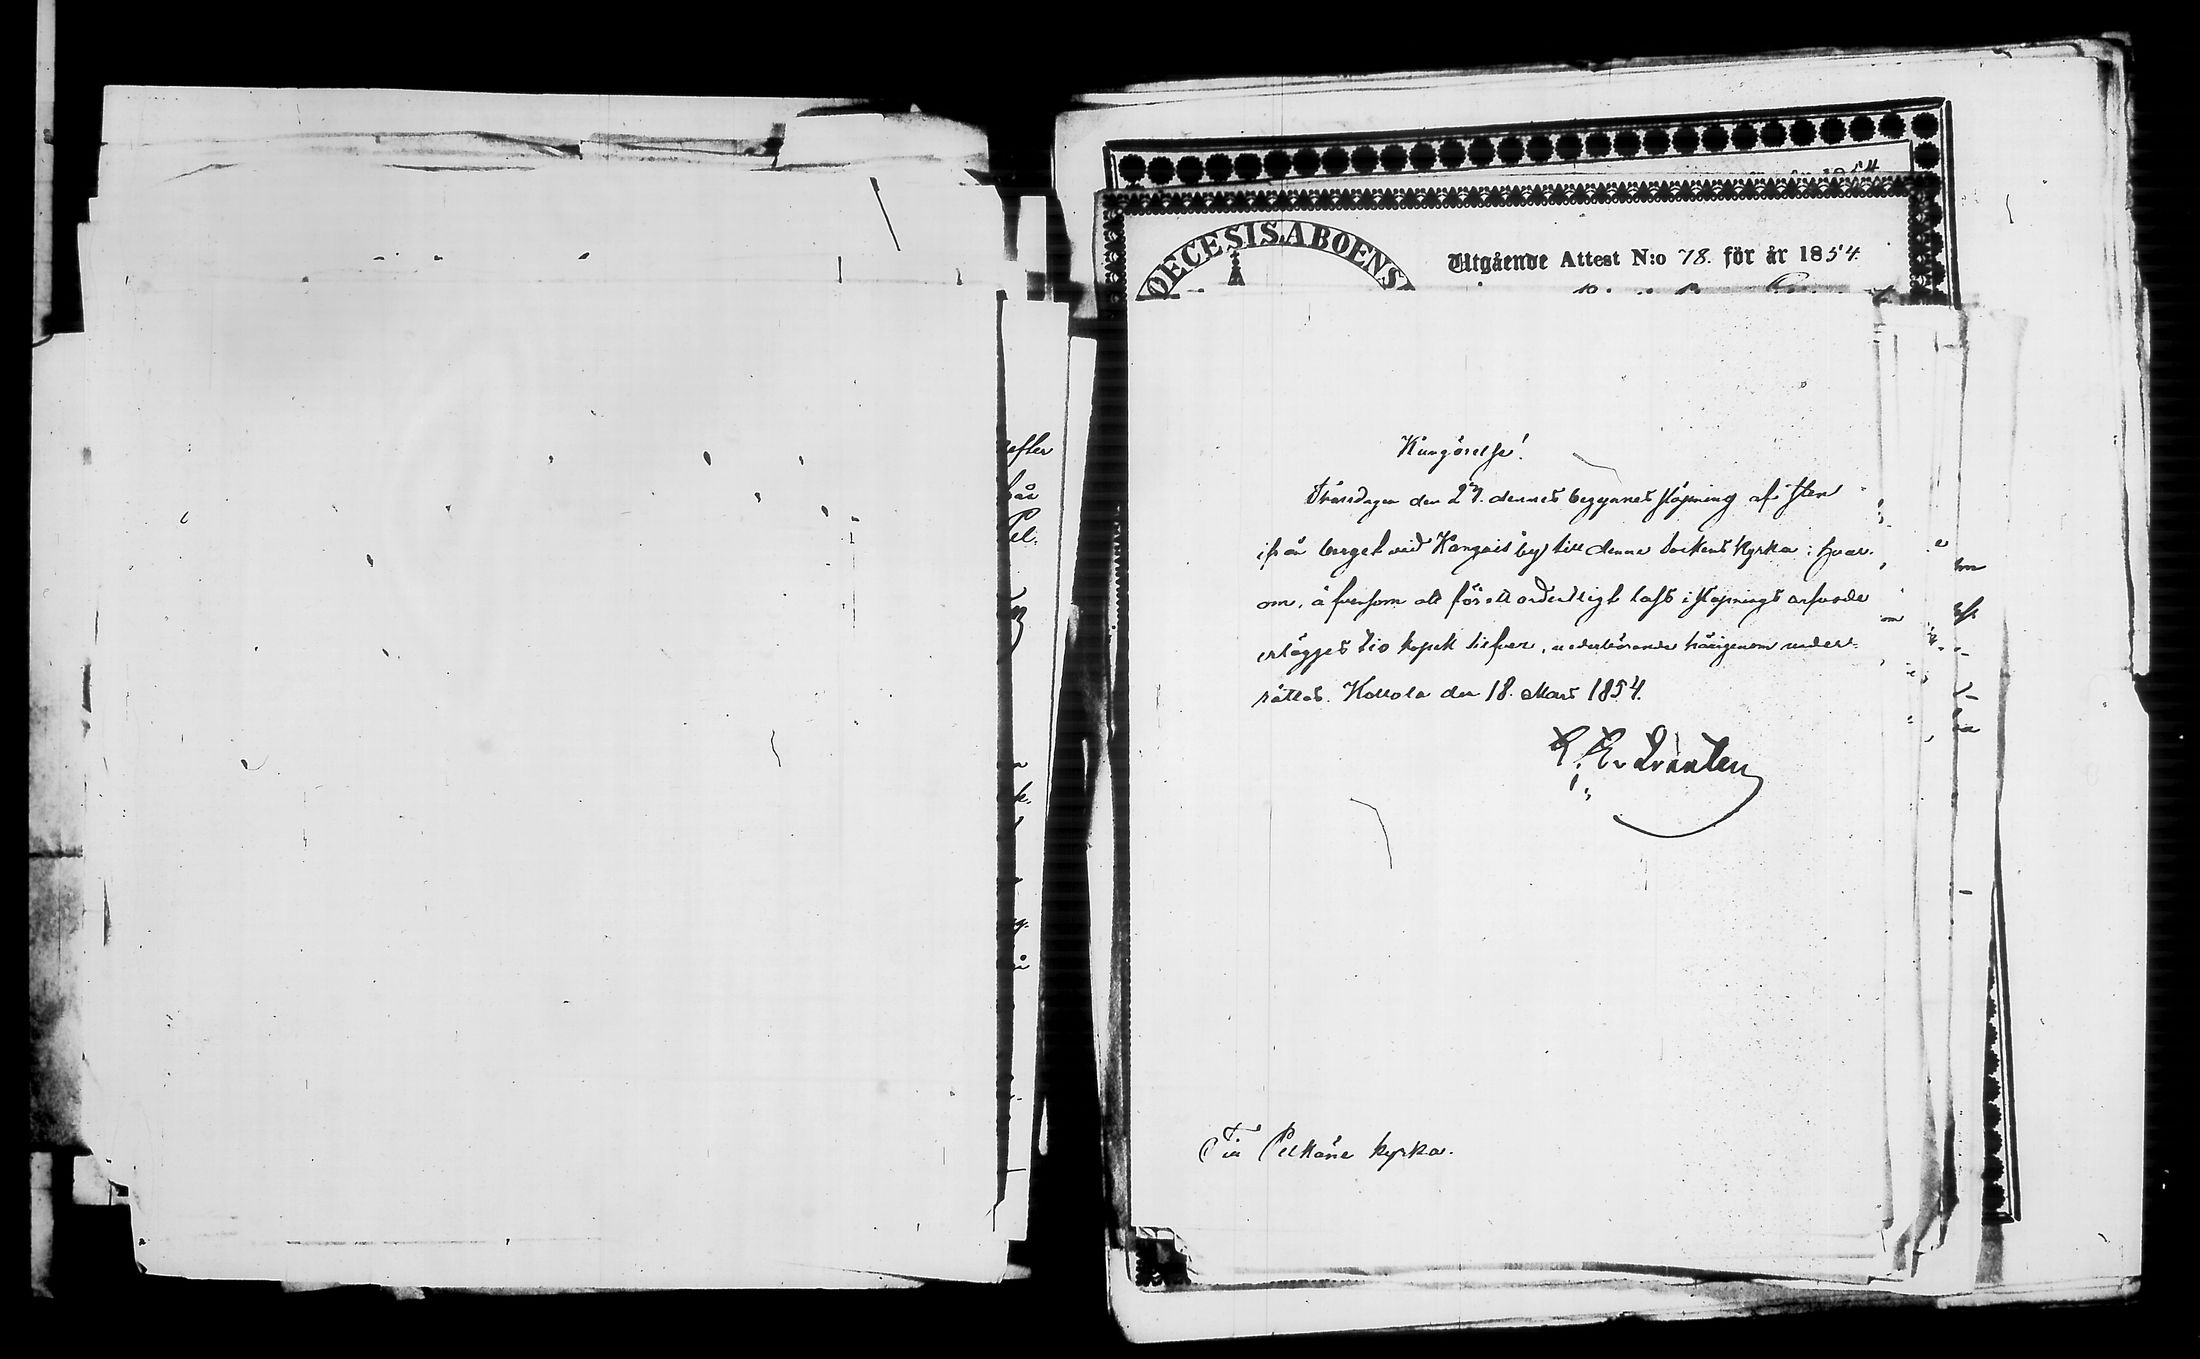 1854
OECESIS.ABOENS
Utgående Attest N:o 78. för år 1854.
Kungörelse!
den 27. dennes begynnes släpning af sten
ifrån berget vid Kangais by till denna Sockens Kyrka; hvar-
om, äfvensom att för ett ordentligt lass i släpnings arfvode
erlägges tio kopek silfver, vederbörande härigenom under-
rättas. Kollola den 18. Mars 1854.
Till Pelkäne kyrka.
efter